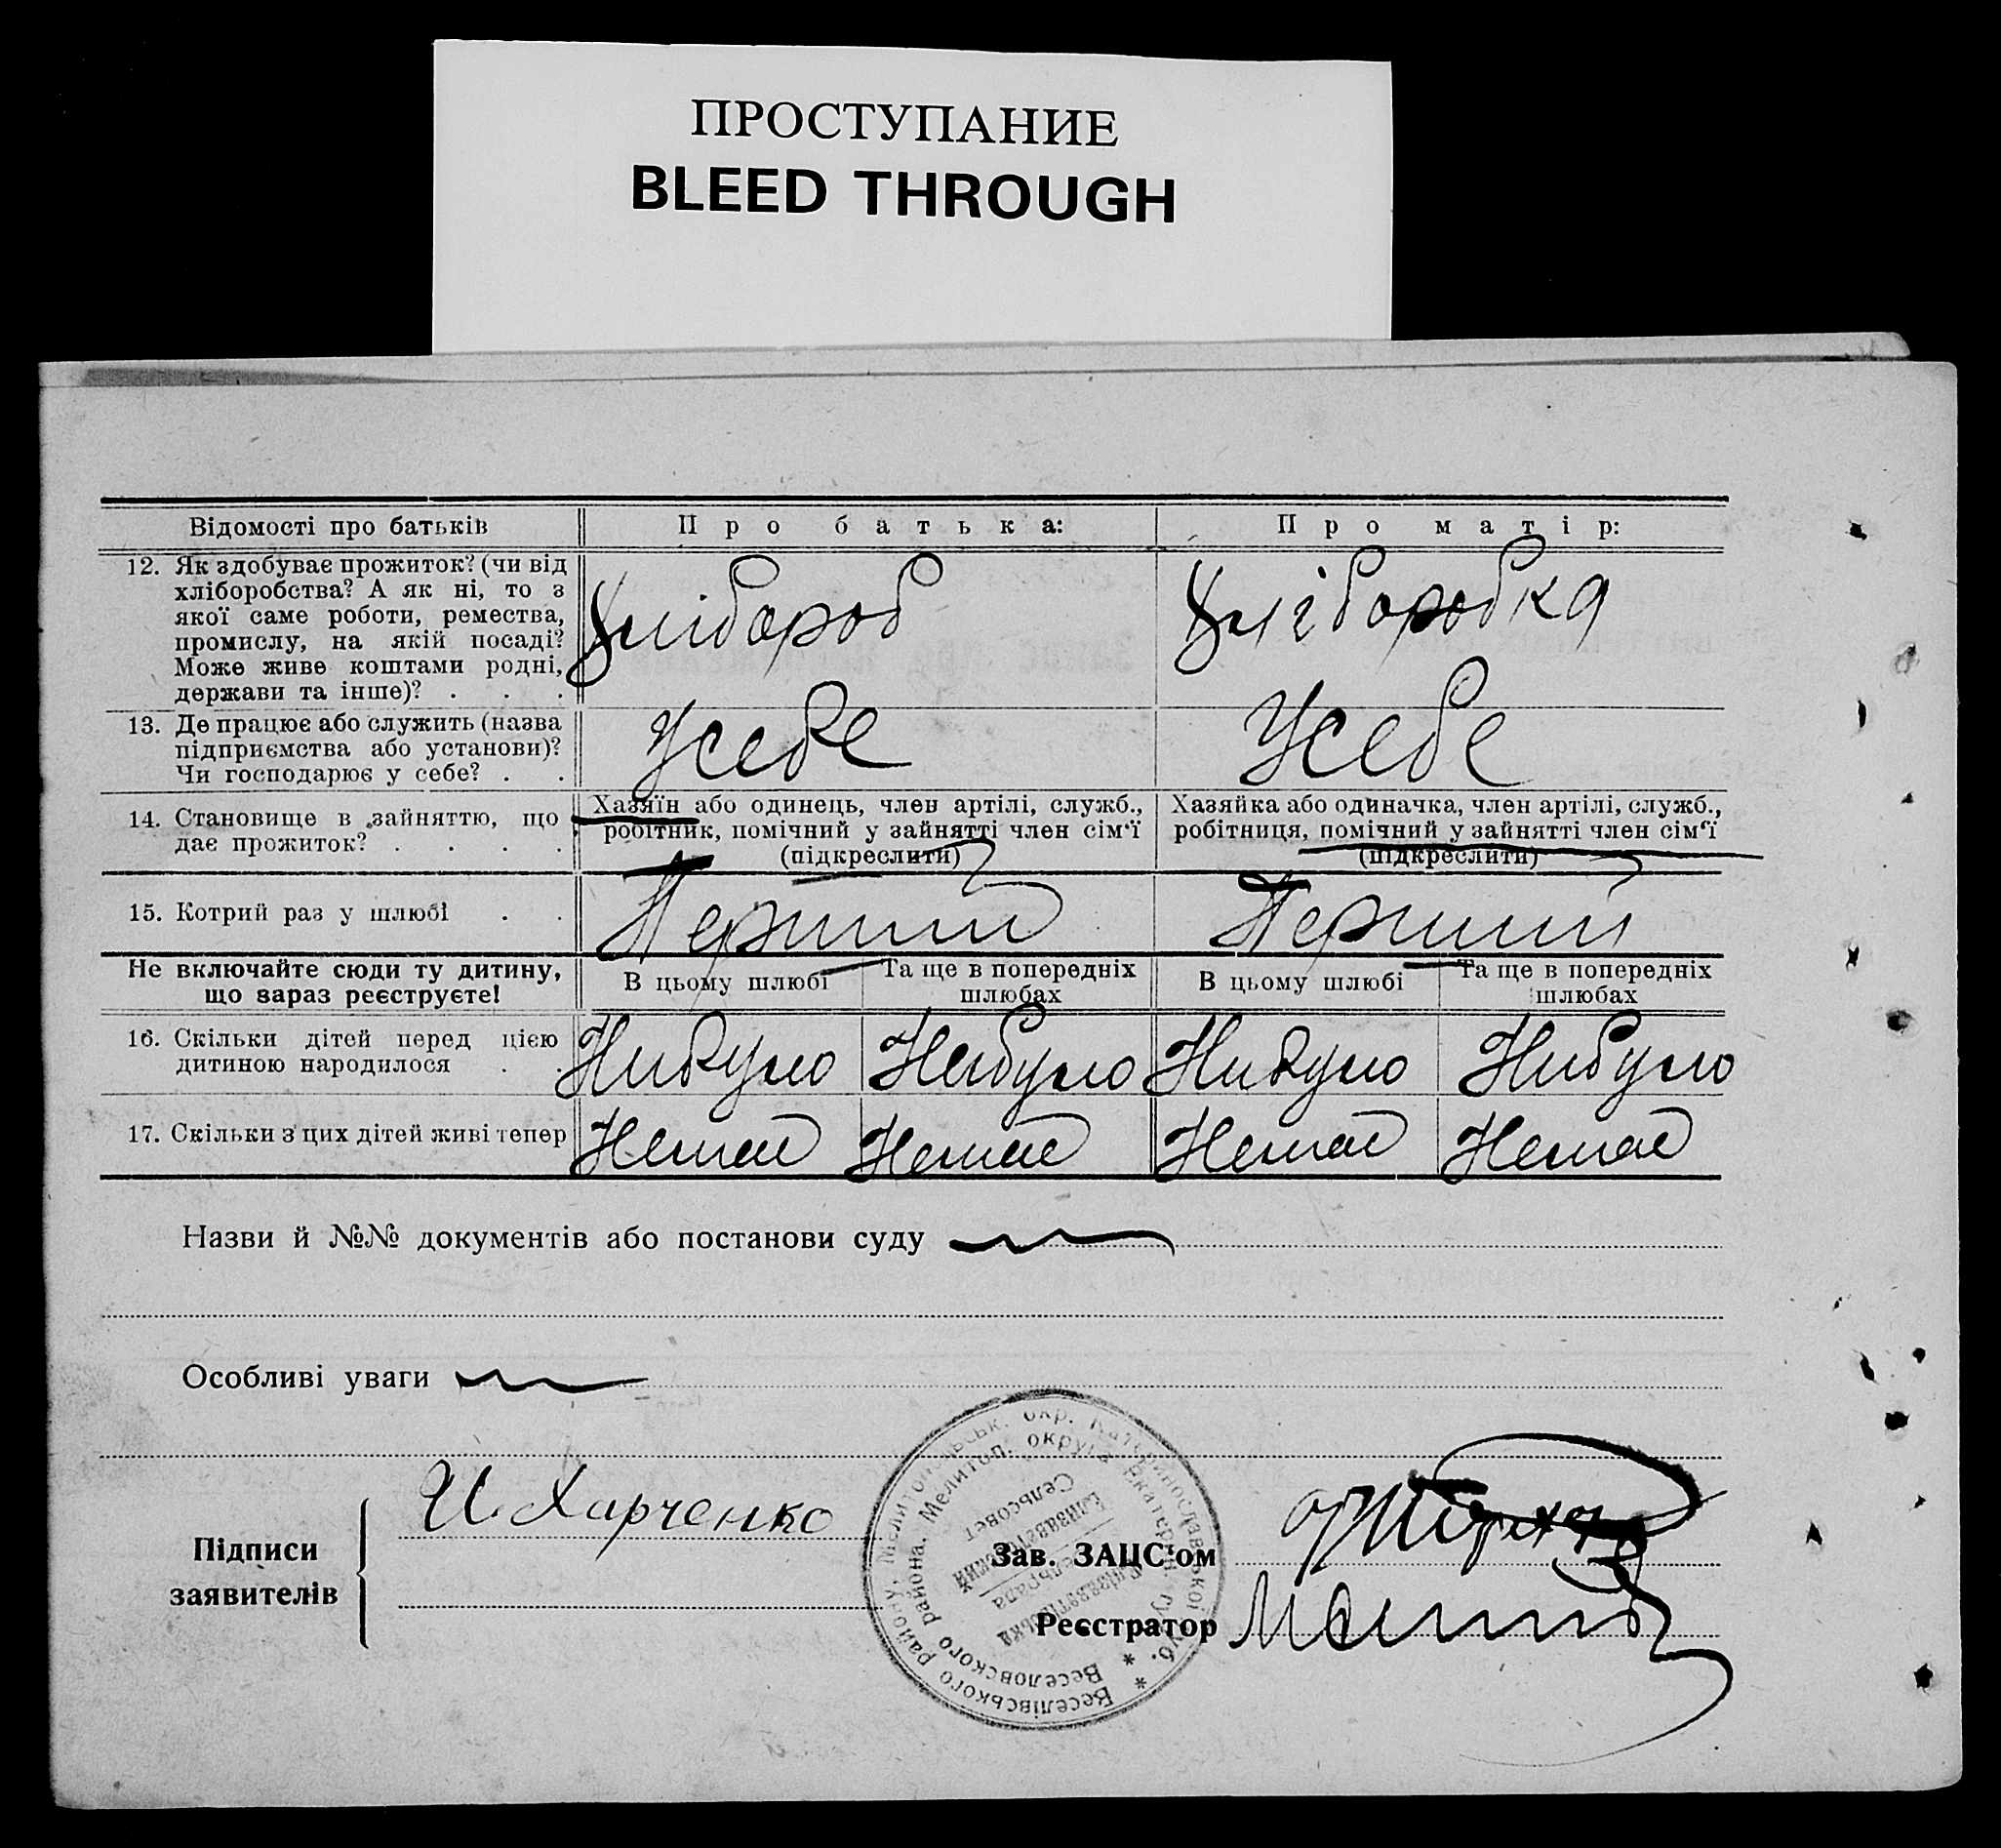 ПРОСТУПАНИЕ
BLEED THROUGH
Відомості про батьків
Про батька:
Про матір:
12. Як здобуває прожиток? (чи від
хліборобства? А як ні, то з
якої саме роботи, ремества,
промислу, на якій посаді?
Може живе коштами родні,
держави та інше)? . . .
Хлібороб
Хліборобка
13. Де працює або служить (назва
підприємства або установи)?
Чи господарює у себе? . .
Усебе
Усебе
14. Становище в зайняттю, що
дає прожиток? . . . .
Хазяїн або одинець, член артілі, служб.,
робітник, помічний у зайнятті член сім'ї
(підкреслити)
Хазяйка або одиначка, член артілі, служб.,
робітниця, помічний у зайнятті член сім'ї
(підкреслити)
15. Котрий раз у шлюбі . .
Перший
Перший
Не включайте сюди ту дитину,
що зараз реєструєте!
В цьому шлюбі
Та ще в попередніх
шлюбах
В цьому шлюбі
Та ще в попередніх
шлюбах
16. Скільки дітей перед цією
дитиною народилося . .
Нибуло
Небуло
Нибуло
Нибуло
17. Скільки з цих дітей живі тепер
Немає
Немає
Немає
Немає
Назви й №№ документів або постанови суду
Особливі уваги
Підписи
заявителів
И. Харченко
Зав. ЗАЦС'ом
Реєстратор
Веселівського району, Мелитопольськ. окр. Катеринославської губ. *
Веселовского района, Мелитоп. округа Екатерин. губ. *
Єлізаветівська
Сельрада
Елизаветовский
Сельсовет